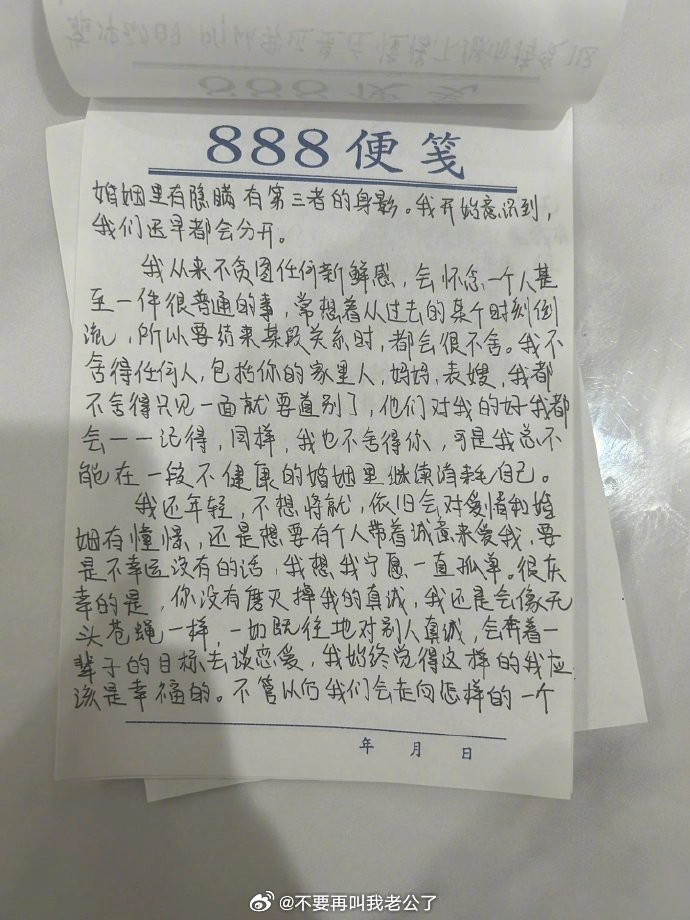 888便笺
婚姻里有隐瞒有第三者的身影。我开始意识到,
我们迟早都会分开。
我从来不贪图任何新鲜感,会怀念一个人甚
至一件很普通的事,常想着从过去的某个时刻倒
流,所以要结束某段关系时,都会很不舍。我不
舍得任何人,包括你的家里人,妈妈,表嫂,我都
不舍得只见一面就要道别了,他们对我的好我都
会一一记得,同样,我也不舍得你,可是我总不
能在一段不健康的婚姻里继续消耗自己。
我还年轻,不想将就,依旧会对爱情和婚
姻有憧憬,还是想要有个人带着诚意来爱我,要
是不幸运没有的话,我想我宁愿一直孤单。很庆
幸的是,你没有磨灭掉我的真诚,我还是会像无
头苍蝇一样,一如既往地对别人真诚,会奔着一
辈子的目标去谈恋爱,我始终觉得这样的我应
该是幸福的。不管以后我们会走向怎样的一个
年 月 日
@不要再叫我老公了